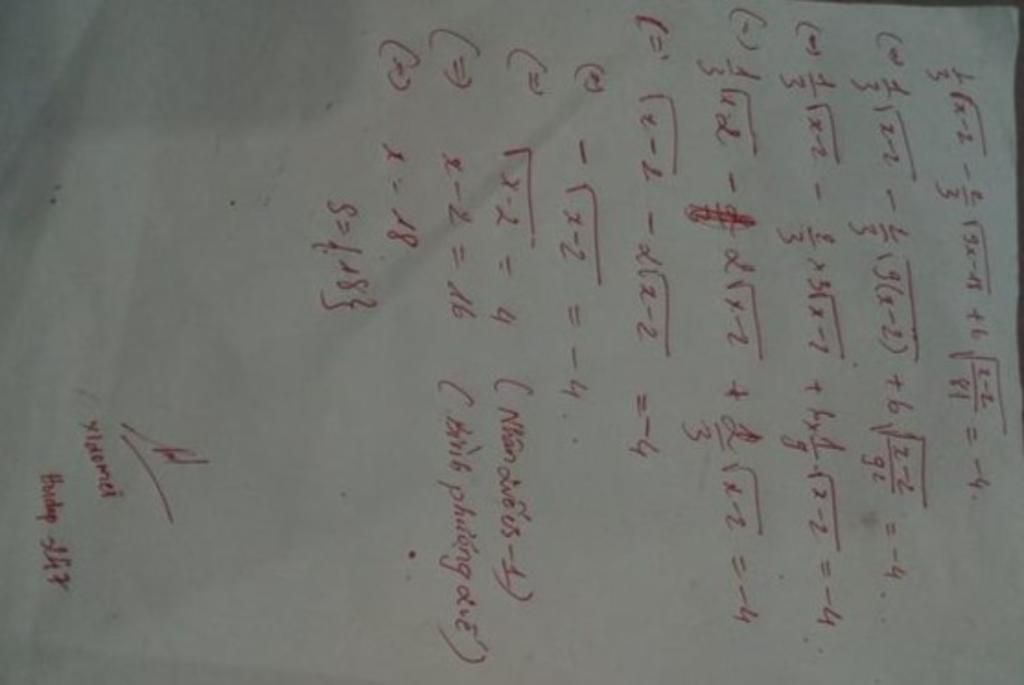 1/3 √x-2 - 2/3 √9x-18 + 6 √x-2/81 = -4.
(=) 1/3 √x-2 - 2/3 √9(x-2) + 6 √x-2/9² = -4...
(=) 1/3 √x-2 - 2/3 × 3√x-2 + 6 × 1/9 √x-2 = -4.
(=) 1/3 √x-2 - 2√x-2 + 2/3 √x-2 = -4
(=) √x-2 - 2√x-2 = -4
(=) - √x-2 = -4.
(=) √x-2 = 4 (Nhân 2 vế cs -1)
(=) x-2 = 16 (bình phương 2 vế)
(=) x = 18
S={18}